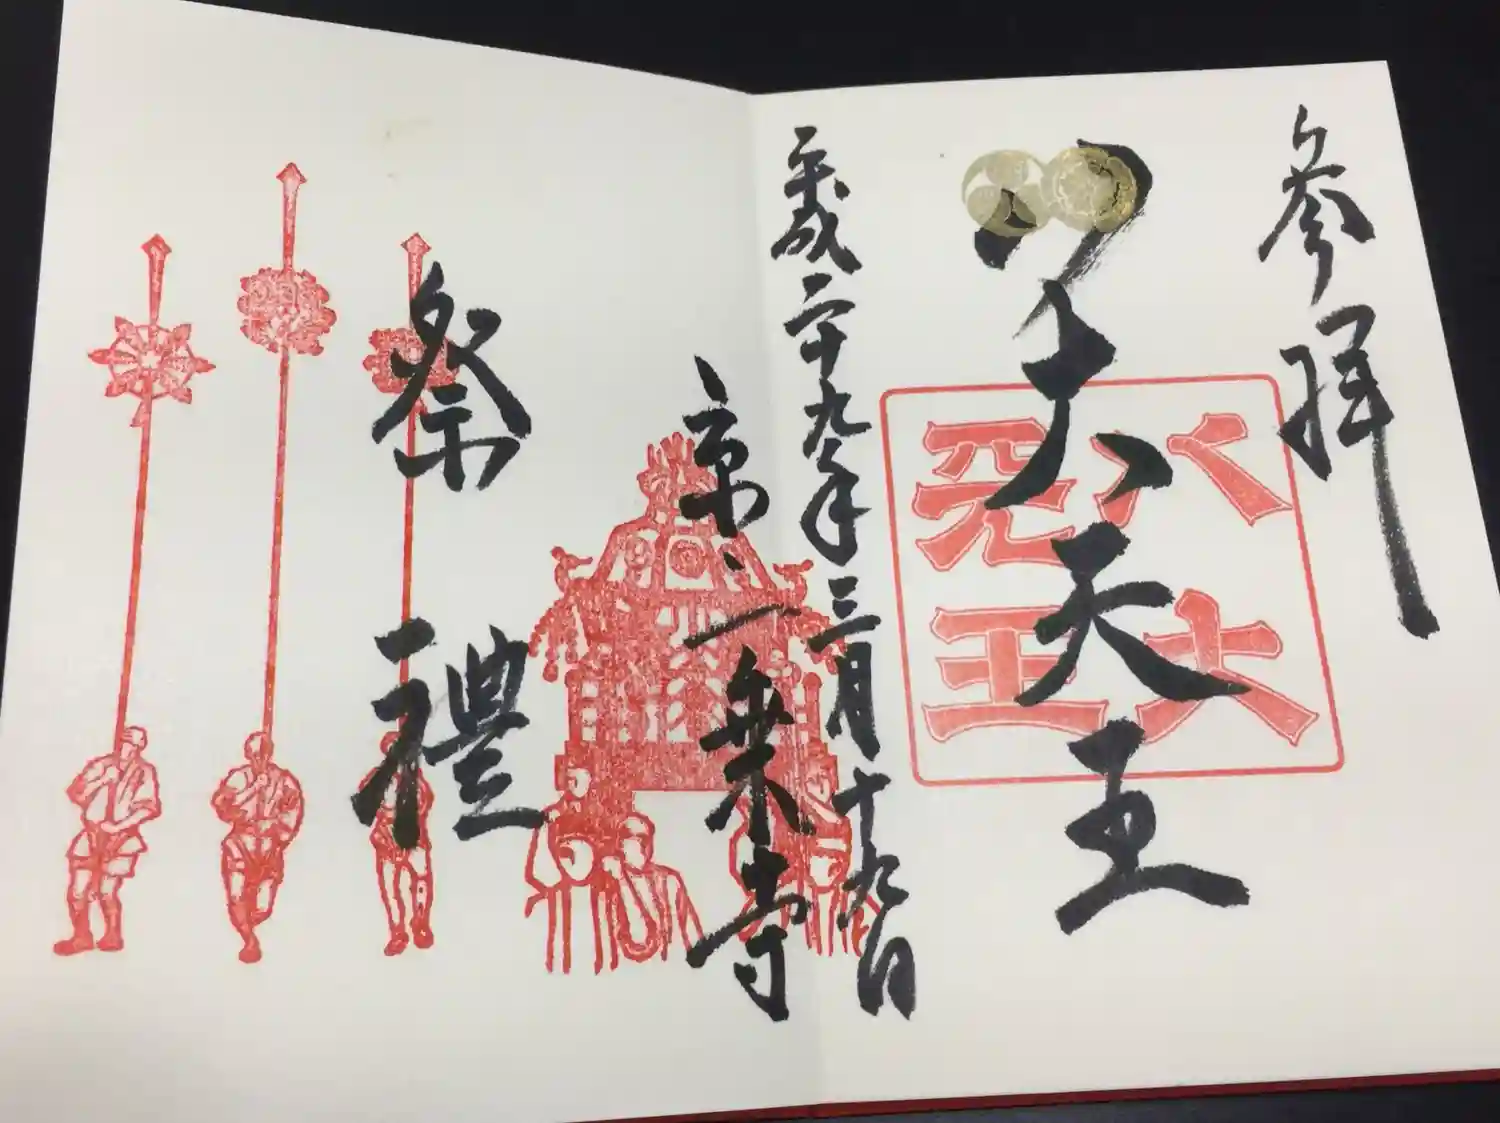 参拝
八大天王
八大天王
平成二十九年三月十九日
京、一乗寺
祭禮